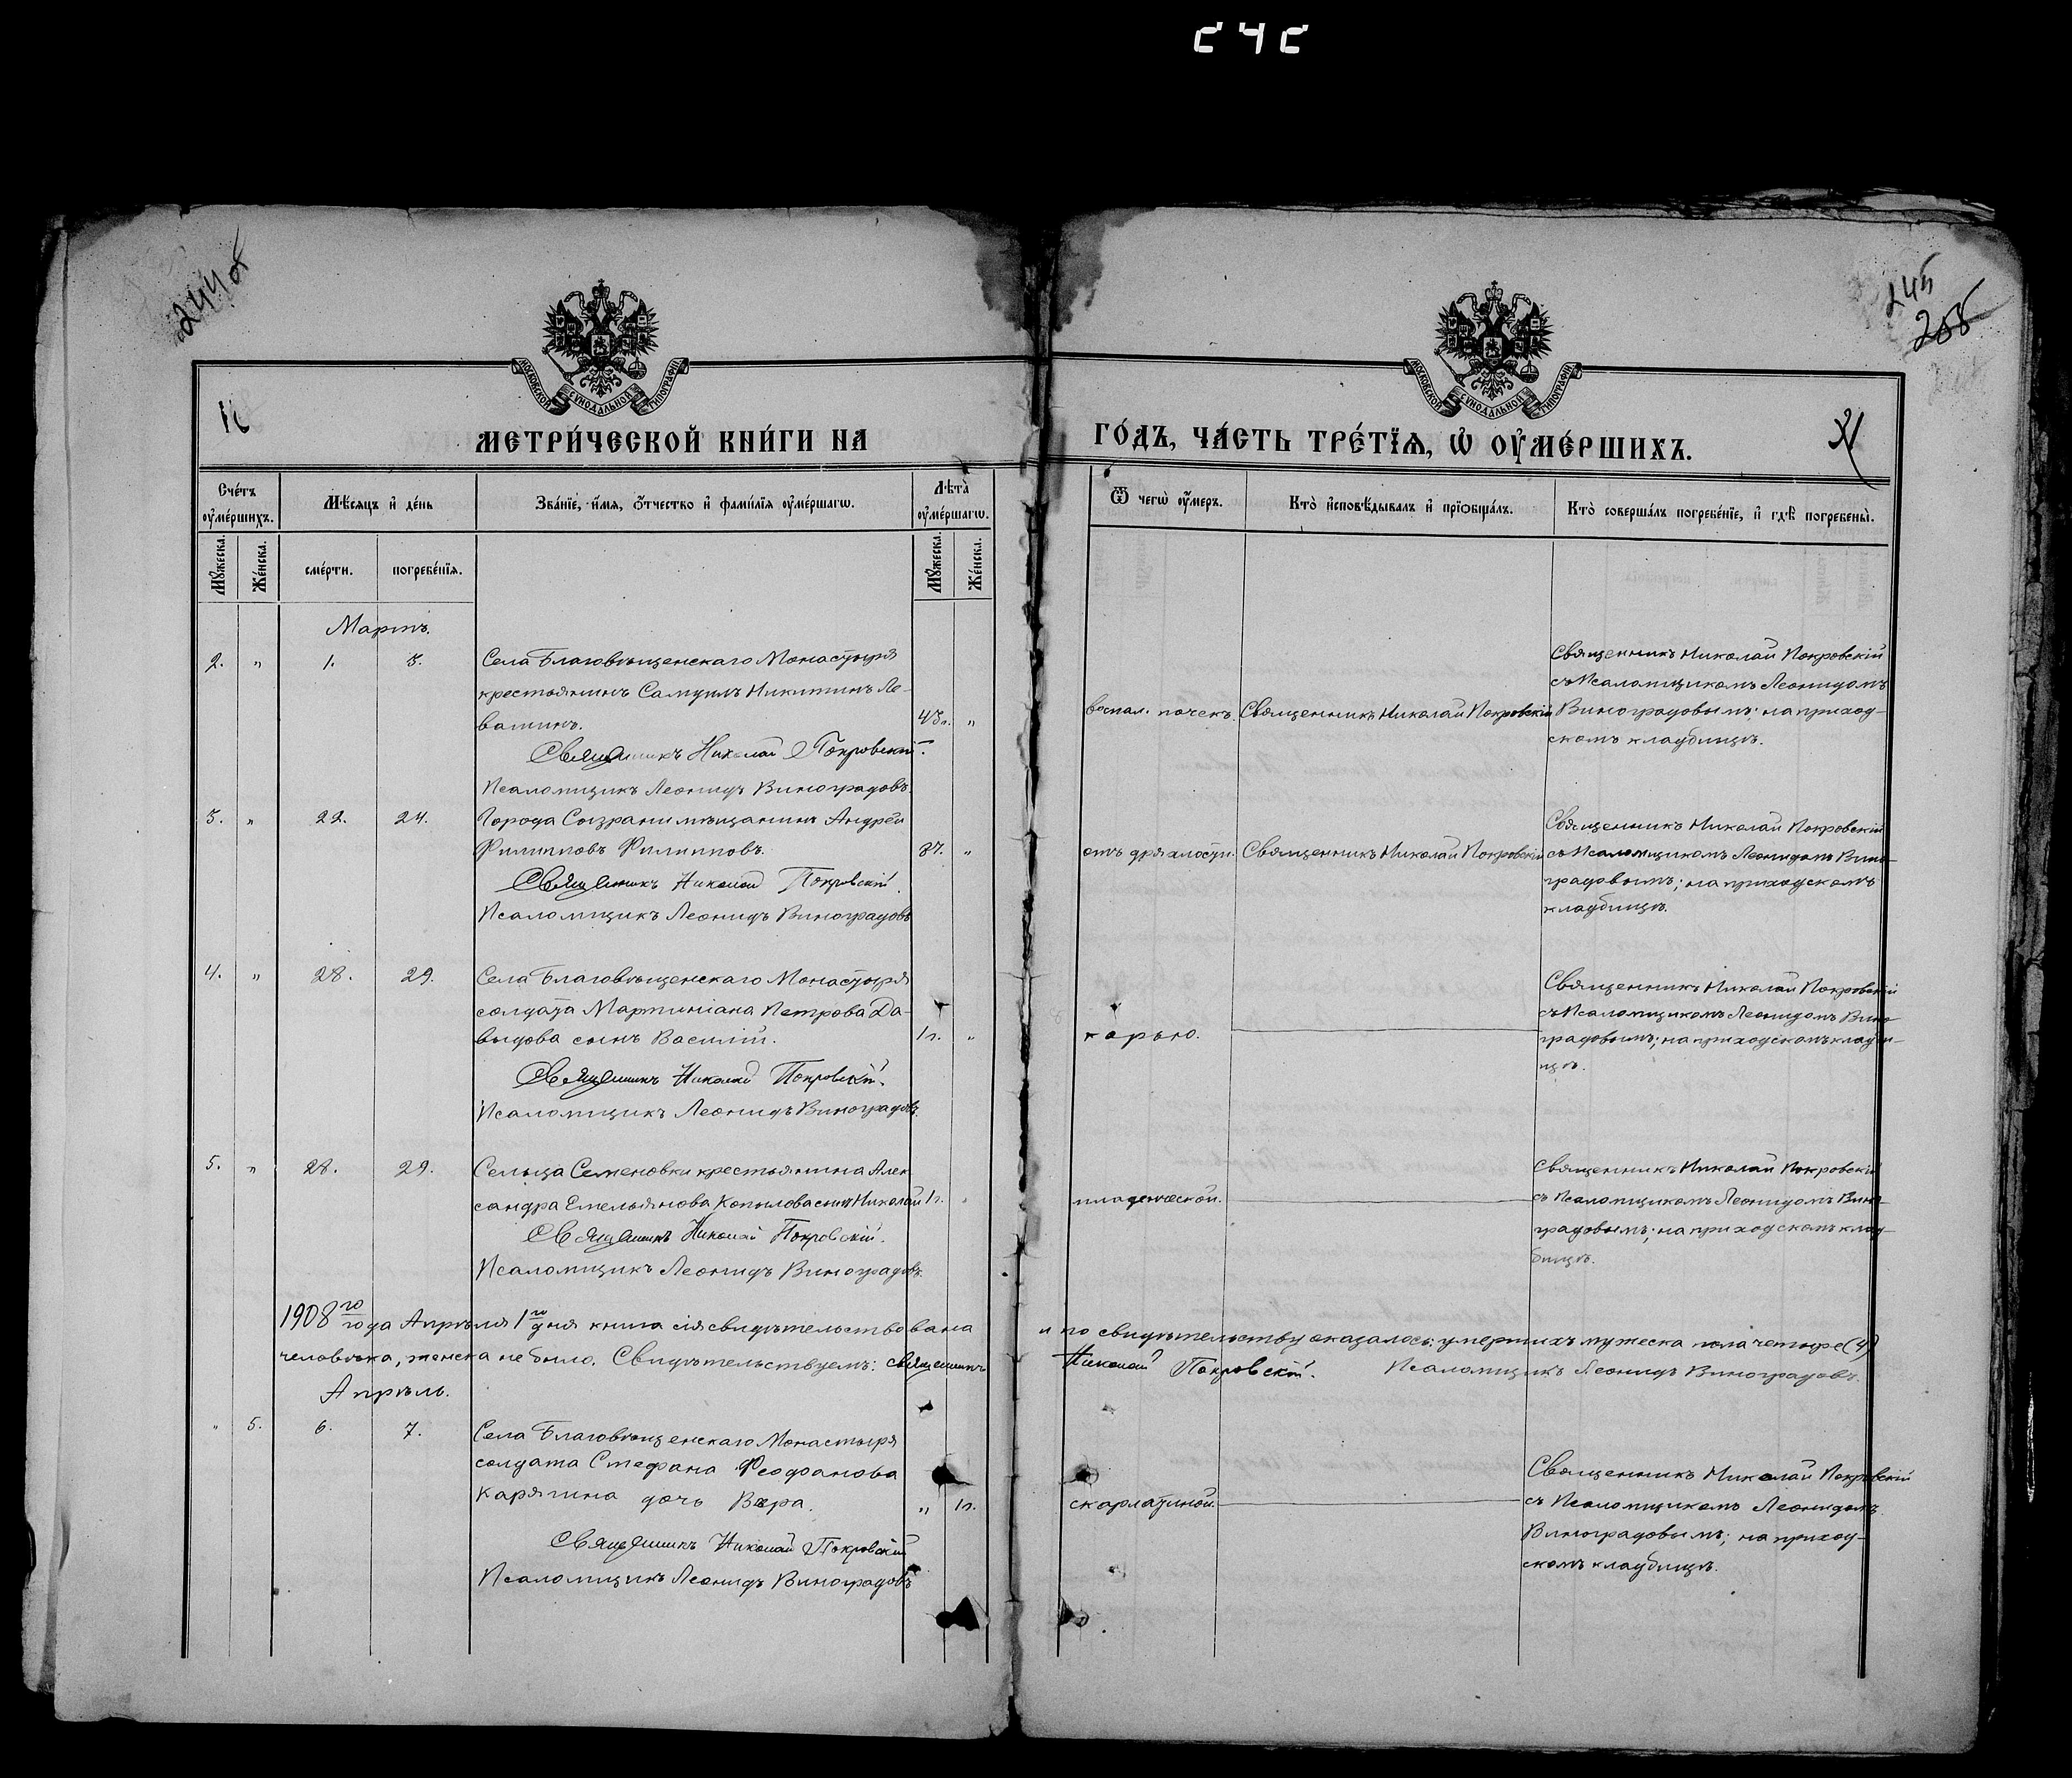 244 об
245
МОСКОВСКОЙ СУНОДАЛЬНОЙ ТИПОГРАФІИ
МОСКОВСКОЙ СУНОДАЛЬНОЙ ТИПОГРАФІИ
МЕТРИ́ЧЕСКОЙ КНИ́ГИ НА
ГО́ДЪ, ЧА́СТЬ ТРЕ́ТЇѦ, Ѡ҆ ОУ҆МЕ́РШИХЪ.
Сче́тъ оу҆ме́ршихъ.
Мѣ́сяцъ и҆ де́нь
Зва́нїе, и҆́мя, ѻ҆́тчество и҆ фами́лїя оу҆ме́ршагѡ.
Лѣ́та̀ оу҆ме́ршагѡ.
Ѿ чегѡ̀ оу҆́меръ.
Кто̀ и҆сповѣ́дывалъ и҆ прїѡбща́лъ.
Кто̀ соверша́лъ погребе́нїе, и҆ гдѣ̀ погребены̀.
Мꙋ́жеска.
Же́нска.
сме́рти.
погребе́нїя.
Мꙋ́жеска.
Же́нска.
Мартъ.
2. „ 1. 3. Села Благовѣщенскаго Монастыря
крестьянинъ Самуилъ Никитинъ Ле-
вашинъ. 43 л. „
Священникъ Николай Покровскій.
Псаломщикъ Леонидъ Виноградовъ.
воспал. почекъ. Священникъ Николай Покровскій
Священникъ Николай Покровскій
съ Псаломщикомъ Леонидомъ
Виноградовымъ; на приход-
скомъ кладбищѣ.
3. „ 22. 24. Города Сызрани мѣщанинъ Андрей
Филипповъ Филипповъ. 87. „
Священникъ Николай Покровскій.
Псаломщикъ Леонидъ Виноградовъ
отъ дряхлости. Священникъ Николай Покровскій
Священникъ Николай Покровскій
съ Псаломщикомъ Леонидомъ Вино-
градовымъ; на приходскомъ
кладбищѣ.
4. „ 28. 29. Села Благовѣщенскаго Монастыря
солдата Мартиніана Петрова Да-
выдова сынъ Василій. 1 г. „
Священникъ Николай Покровскій.
Псаломщикъ Леонидъ Виноградовъ.
корью.
Священникъ Николай Покровскій
съ Псаломщикомъ Леонидомъ Вино-
градовымъ; на приходскомъ кладби-
щѣ.
5. „ 28. 29. Сельца Семеновки крестьянина Алек
сандра Емельянова Копылова сынъ Николай 1 г. „
Священникъ Николай Покровскій.
Псаломщикъ Леонидъ Виноградовъ.
младенческой.
Священникъ Николай Покровскій
съ Псаломщикомъ Леонидомъ Вино-
градовымъ; на приходскомъ клад-
бищѣ.
1908го года Апрѣля 1го дня книга сія свидѣтельствована и по свидѣтельству оказалось: умершихъ мужеска пола четыре (4)
человѣка, женска не было. Свидѣтельствуемъ: священникъ Николай Покровскій. Псаломщикъ Леонидъ Виноградовъ.
Апрѣль.
„ 5. 6. 7. Села Благовѣщенскаго Монастыря
солдата Стефана Феофанова
Карягина дочь Вѣра. „ 1 г.
Священникъ Николай Покровскій
Псаломщикъ Леонидъ Виноградовъ
скарлатиной.
Священникъ Николай Покровскій
съ Псаломщикомъ Леонидомъ
Виноградовымъ; на приход-
скомъ кладбищѣ.